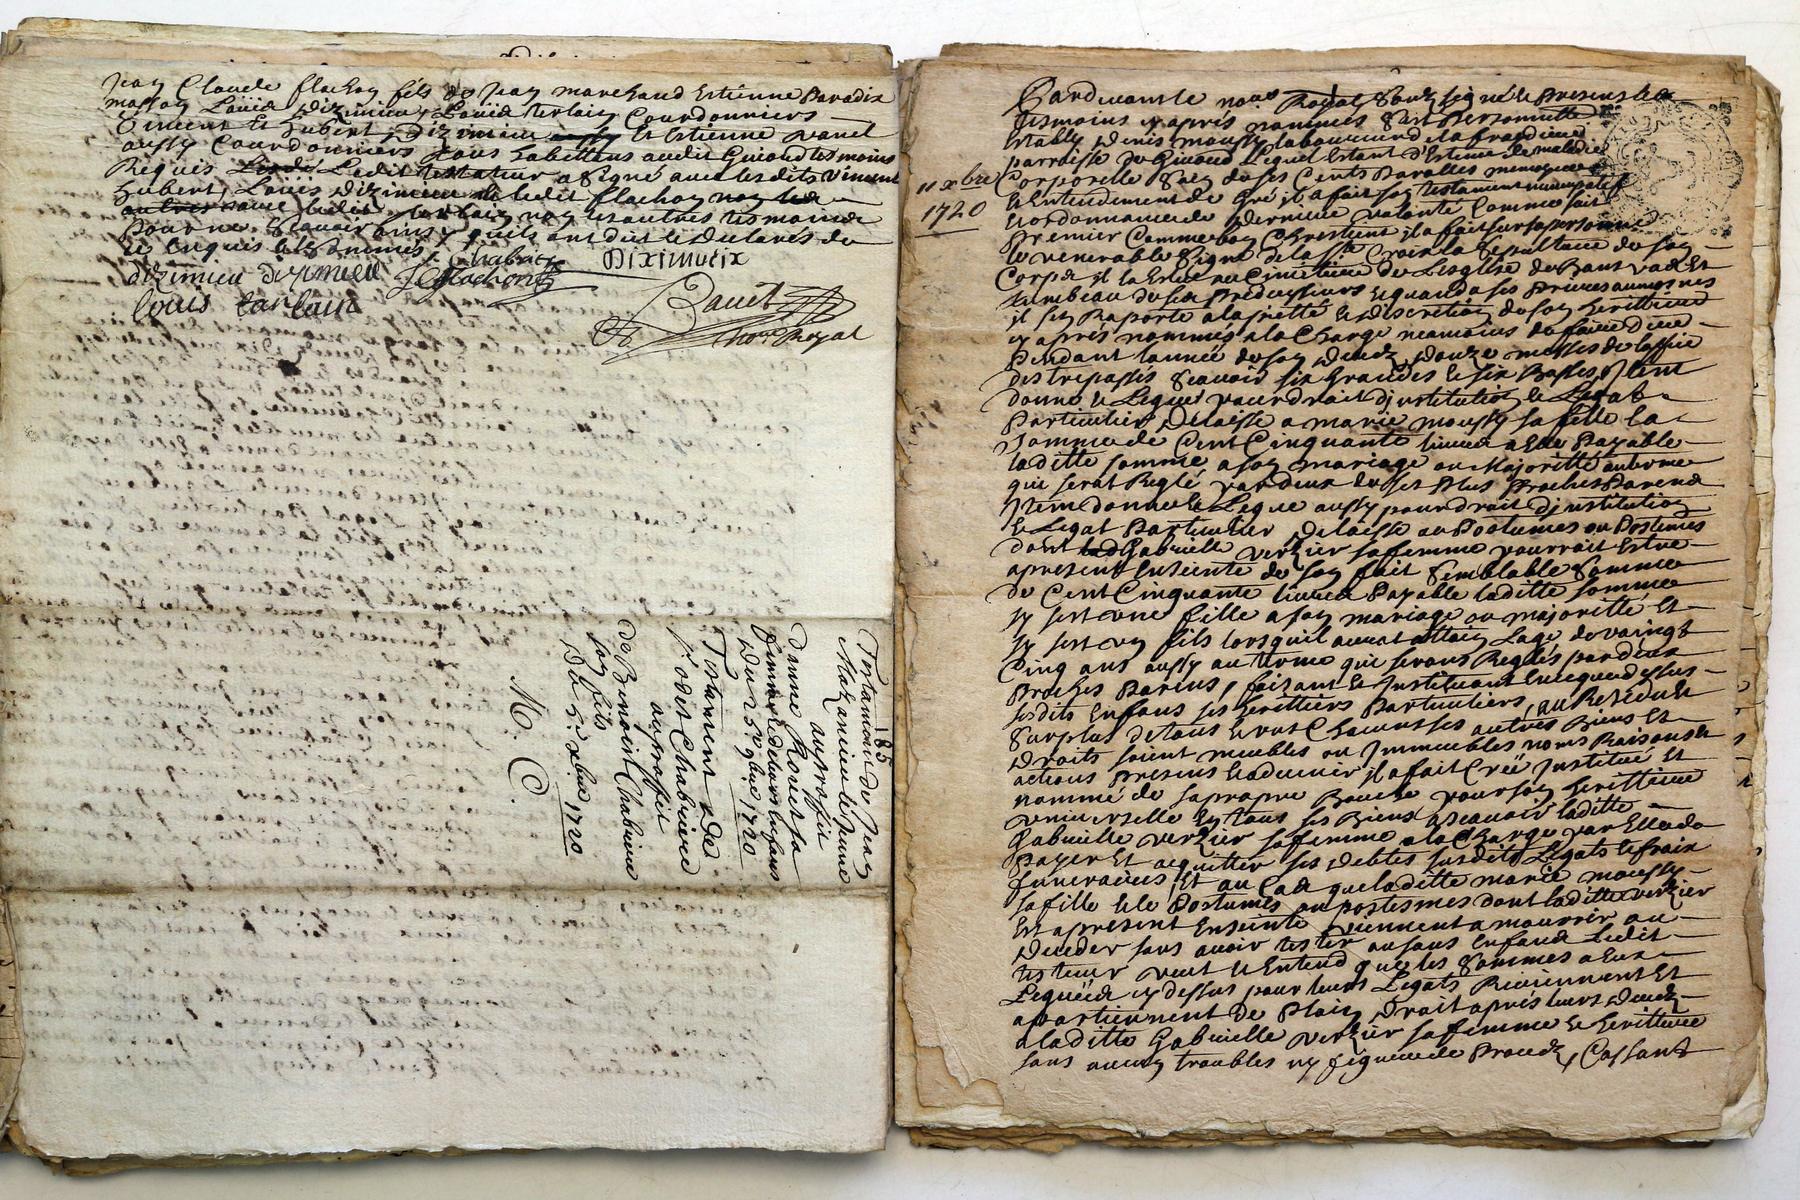 Jean Claude flachon fils de Jean marchand Estienne Paradix
masson Loüis Dizimieu Loüis terlain Courdonniers
Vincent et hubert Dizimieu et Estienne
aussy Courdonniers tous habittans audit Giraud tesmoins
Requis Ledit testateur a signé avec lesdits Vincent
hubert, Loüis Dizimieu et ledit flachon non les
autres
pour ne sçavoir ainsy quils ont dit et declarés de
ce enquis et sommés
dizimieu dizimieu Chabri
J C flachon
DIXIMIEIX
louis tarlain
Not. Royal
185
Testament de Jean
Mazancieu le Jeune
autraffit
Danne Rouier sa
femme
Du 25e 9bre 1720
Testament Des
Sr odet Chabriere
autraffit
De Benoist Chabriere
son fils
Du 5e xbre 1720
M. C.
11 xbre
1720
Pardevant le nore Royal Soubsigné et Presens les
tesmoins cy apres nommés fut Personnellemt
Estably Denis moussy laboureur de la frandiere
parroisse de Giraud Lequel Estant d'Estenu de maladie
Corporelle sain de ses Cents Parolles memoyre
et Entendement de gré il a fait son testament nuncupatif
et ordonnance de derniere volonté Comme suit
Premier Comme bon Chrestient il a fait sur sa personne
le venerable signe de la Ste Croix la sepulture de son
Corps il la Eslue au Cimetiere de Lesglise de
tumbeau de ses predecesseurs et quand a ses prieres aumosnes
il sen Raporte a la pietté et discretion de son heritiere
cy aprés nommés a la Charge neanmoins de faire dire
Pendant lannée de son decedz douze messes de loffice
des trepassés sçavoir six Grandes et six Basses, Item
donne et Legue pour droit dinstitution et Legat
Particulier Delaisse a marie moussy sa fille la
Somme de Cent Cinquante livres a Elle Payable
laditte somme a son mariage ou Majoritté au terme
qui serat Reglé par deux de ses Plus Proches Parens
Item donne et Legue aussy pour droit dinstitution
et Legat Particulier delaisse au Postumes ou Postumes
dont Gabrielle verzier sa femme pourrait Estre
apresent Enseinte de son fait semblable somme
de Cent Cinquante livres Payable laditte somme
sy sest une fille a son mariage ou majoritté et
sy sest un fils lors quil aurat attain Lage de vaingt
Cinq ans aussy au terme qui serons Reglés par deux
Proches Parens, faizant et Instituant En ce que dessus
sesdits Enfans ses heritiers Particuliers, au Residu et
surplus de tous et uns Chacuns ses autres Biens et
droits soient meubles ou Immeubles noms Raisons et
actions Presens et advenir il a fait Créé Institué et
nommé de sa propre Bouche pour son heritiere
universelle En tous ses Biens sçavoir laditte
Gabrielle verzier sa femme a la Charge par Elle de
payer Et acquitter ses debtes susdits Legats et frais
funeraires, Et au Cas que laditte marie moussy
sa fille et le Postumes ou postumes dont laditte verzier
Est apresent Enseinte viennent a mourrir ou
deceder sans avoir tester ou sans Enfans Ledit
testeur veut et Entend que les sommes a Eux
Leguées cy dessus pour leurs Legats Reviennent Et
apartiennent de Plain droit aprés leurs decedz
a laditte Gabrielle verzier sa femme et heritiere
sans aucun troubles ny figure de Procedz, Cassant